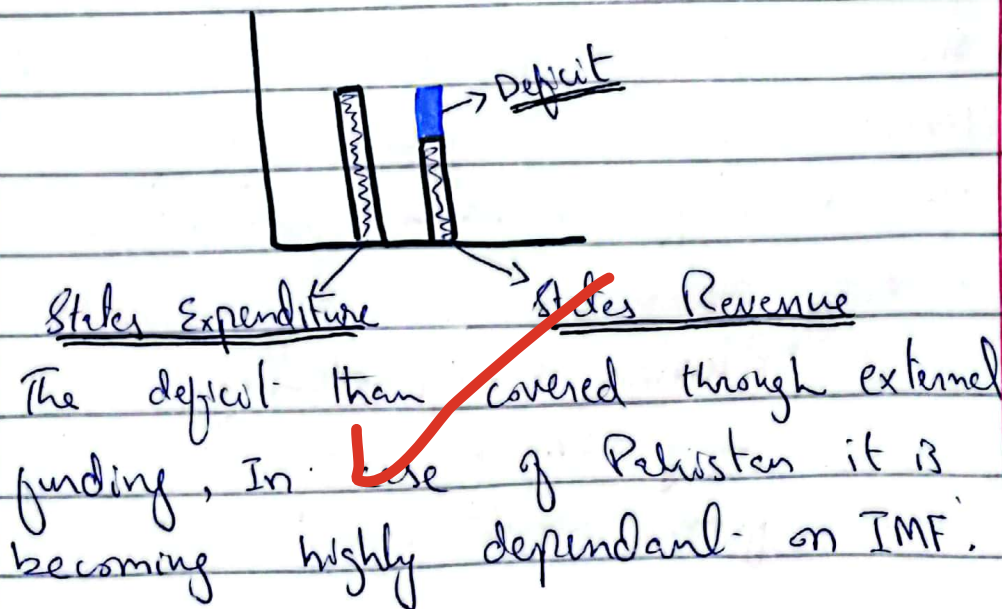 Deficit
States Expenditure
States Revenue
The deficit than covered through external
funding, In case of Pakistan it is
becoming highly dependant on IMF.